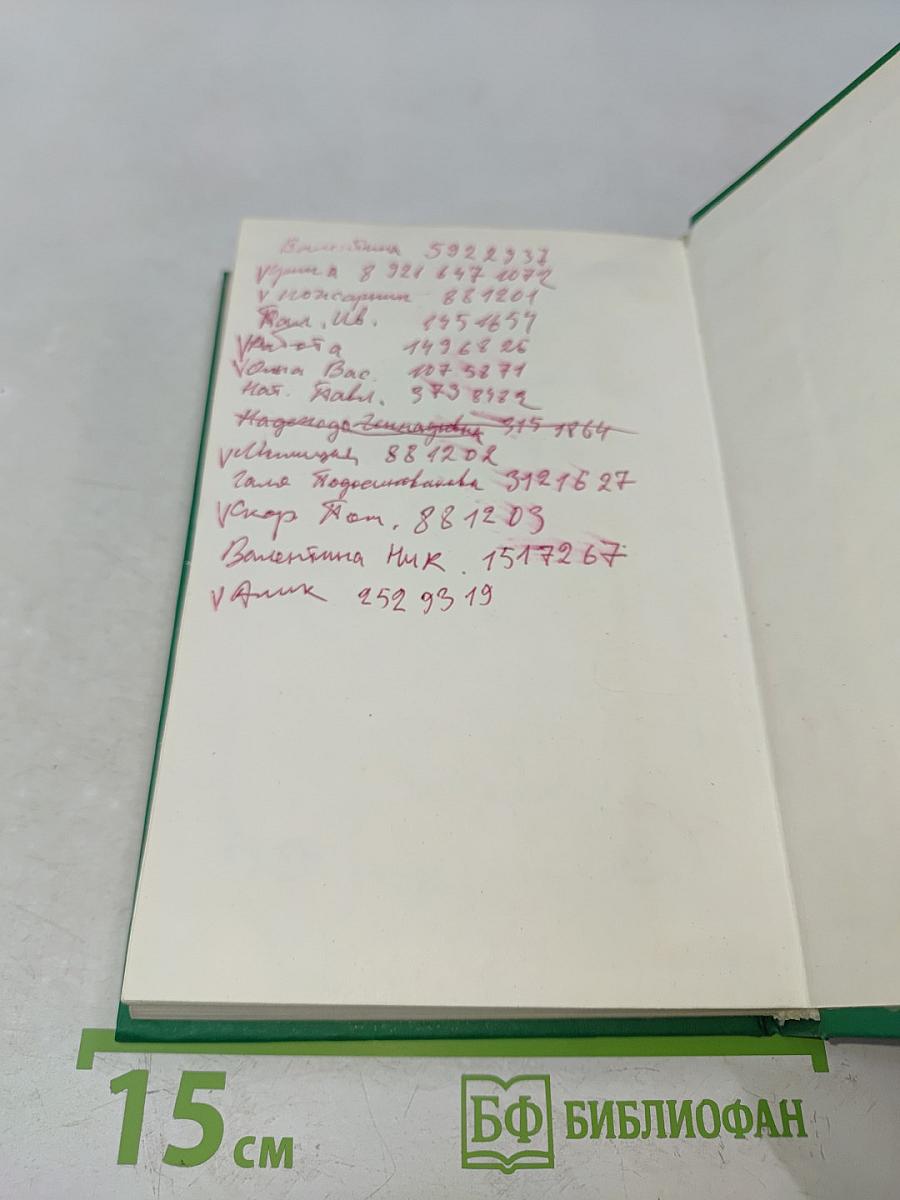 Валентина 5922937
V Ирина 8 921 647 1072
V пожарник 881201
Пал. Ив. 1451654
V Работа 1496826
V Ольга Вас. 1075871
Нат. Павл. 3738482
Надежда Геннадьевна 315 1864
V Милиция 881202
Галя 3121627
V Скор Пом. 881203
Валентина Ник. 1517267
V Алик 252 93 19
15 см
БФ БИБЛИОФАН